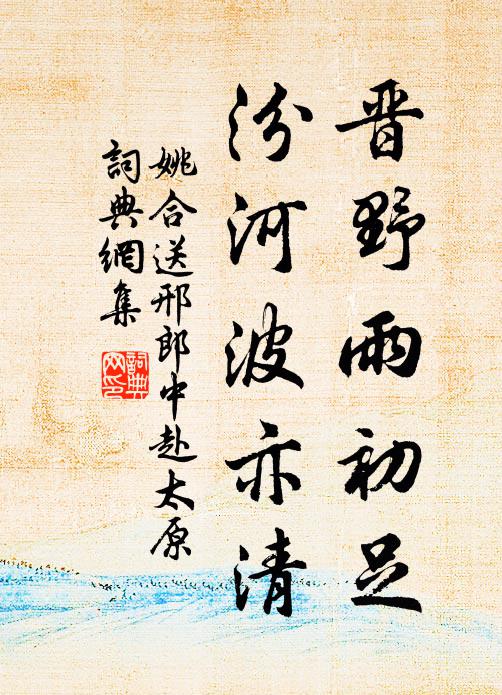 晋野雨初足
汾河波亦清
姚合送邢郎中赴太原
詞典網集
詞典网印